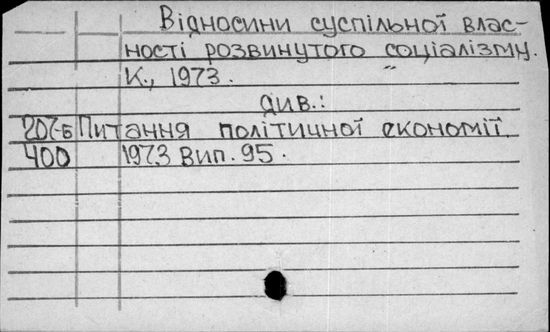 Відносини суспільної влас-
ності розвинутого соціалізму.
К., 1973.
див.:
207-Б Питання політичної економії.
400 1973 Вип. 95.